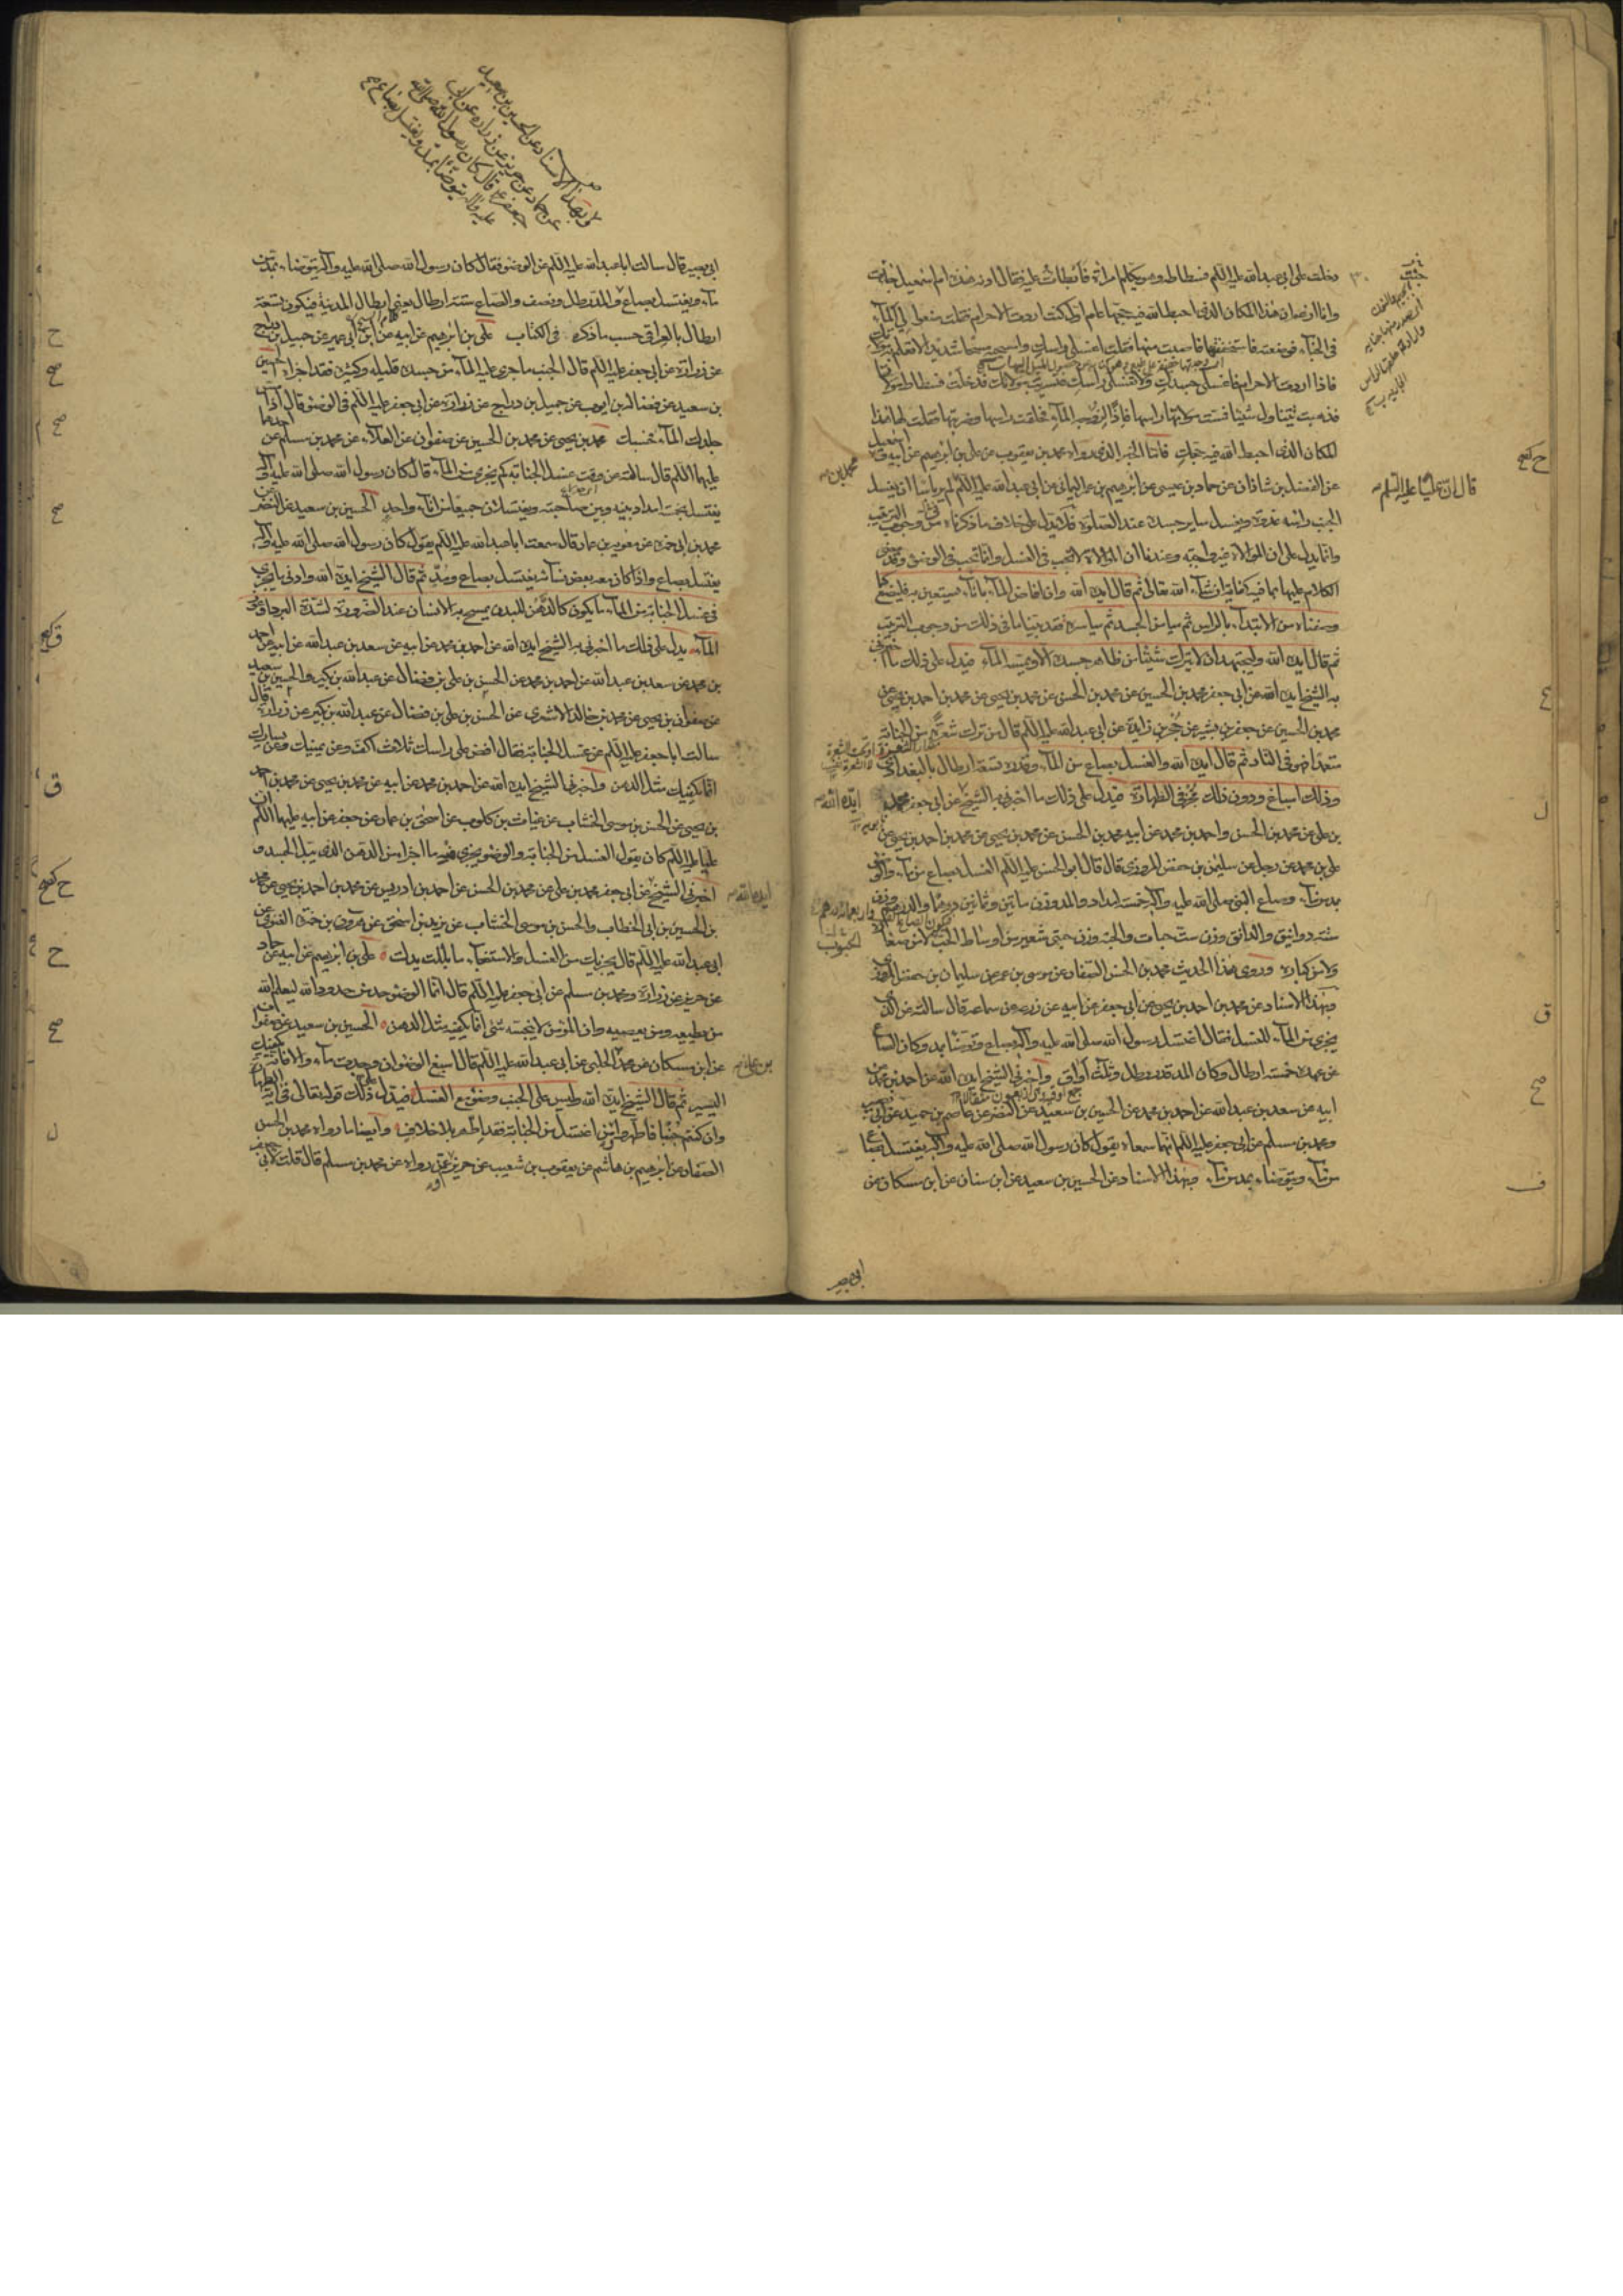 دخلت على ابي عبد الله عليه السلم فسطاطه وهو يكلم امراة فابطات عليه فقال ادنه هذه ام اسمعيل جاءت
وانا ازعم ان هذا المكان الذى احبط الله فيه حجها عام اول كنت اردت الاحرام فقلت ضعوا لى الماء
فى الخباء فوضعته فاستخففتها فاصبت منها فقلت اغسلى راسك وامسحيه مسحا شديدا لا تعلم به مولاتك
فاذا اردت الاحرام فاغسلى جسدك ولا تغسلى راسك فتستريب مولاتك فدخلت فسطاط مولاتها
فذهبت تتناول شيئا فمست مولاتها راسها فاذا لزوجة الماء فحلقت راسها وضربتها فقلت لها هذا
المكان الذى احبط الله فيه حجك فاما الخبر الذى رواه محمد بن يعقوب عن على بن ابرهيم عن ابيه
عن الفضل بن شاذان عن حماد بن عيسى عن ابرهيم بن عمر اليمانى عن ابى عبد الله عليه السلم لم ير باسا ان يغسل
الجنب راسه غدوة ويغسل ساير جسده عند الصلوة فلا يدل على خلاف ما ذكرناه من وجوب الترتيب
وانما يدل على ان الموالاة غير واجبة وعندنا ان الموالاة لا تجب فى الغسل وانما تجب فى الوضوء وقد مضى
الكلام عليها بما فيه كفاية ان شاء الله تعالى ثم قال ايده الله وان افاض الماء باناء يستعين به فليصنع كما
وصفناه من الابتداء بالراس ثم ميامن الجسد ثم مياسره فقد بينا ما فى ذلك من وجوب الترتيب
ثم قال ايده الله وليجتهد ان لا يترك شيئا من ظاهر جسده الا ويمسه الماء فيدل على ذلك ما اخبرنى
به الشيخ ايده الله عن ابى جعفر محمد بن الحسين عن محمد بن الحسن عن محمد بن يحيى عن محمد بن احمد بن يحيى عن
محمد بن الحسين عن جعفر بن بشير عن حجر بن زايدة عن ابى عبد الله عليه السلم قال من ترك شعرة من الجنابة
متعمدا فهو فى النار ثم قال ايده الله والغسل بصاع من الماء وقدره تسعة ارطال بالبغدادى
وذلك اسباغ ودون ذلك مجزئ فى الطهارة فيدل على ذلك ما اخبرنى به الشيخ عن ابى جعفر محمد
بن على عن محمد بن الحسن واحمد بن محمد عن ابيه محمد بن الحسن عن محمد بن يحيى عن محمد بن احمد بن يحيى عن
على بن محمد عن رجل عن سليمن بن حفص المروزى قال قال ابو الحسن عليه السلم الغسل بصاع من ماء والوضوء
بمد من ماء وصاع النبى صلى الله عليه وآله خمسة امداد والمد وزن ماتين وثمانين درهما والدرهم وزن
ستة دوانيق والدانق وزن ست حبات والحبة وزن حبتى شعير من اوساط الحب لا من صغاره
ولا من كباره وروى هذا الحديث محمد بن الحسن الصفار عن موسى بن عمر عن سليمان بن حفص المروزى
وبهذا الاسناد عن محمد بن احمد بن يحيى عن ابى جعفر عن ابيه عن زرعة عن سماعة قال سالته عن الذى
يجزى من الماء للغسل فقال اغتسل رسول الله صلى الله عليه وآله بصاع وتوضا بمد وكان الصاع
على عهده خمسة ارطال وكان المد قدر رطل وثلث اواق واخبرنى الشيخ ايده الله عن احمد بن محمد عن
ابيه عن سعد بن عبد الله عن احمد بن محمد عن الحسين بن سعيد عن النضر عن عاصم بن حميد عن ابى بصير
ومحمد بن مسلم عن ابى جعفر عليه السلم انهما سمعاه يقول كان رسول الله صلى الله عليه وآله يغتسل بصاع
من ماء ويتوضاء بمد من ماء وبهذا الاسناد عن الحسين بن سعيد عن ابن سنان عن ابن مسكان عن
قال ان عليا عليه السلم
محمد بن
ايده الله
ابى بصير
وبهذا الاسناد عن الحسين بن سعيد
عن حماد عن حريز عن زرارة عن ابى
جعفر ع قال كان رسول الله صلى الله
عليه وآله يتوضأ بمد ويغتسل بصاع
ابى بصير قال سالت ابا عبد الله عليه السلم عن الوضوء فقال كان رسول الله صلى الله عليه وآله يتوضاء بمد من
ماء ويغتسل بصاع والمد رطل ونصف والصاع ستة ارطال يعنى ارطال المدينة فيكون تسعة
ارطال بالعراقى حسب ما ذكره فى الكتاب على بن ابرهيم عن ابيه عن ابن ابى عمير عن جميل بن دراج
عن زرارة عن ابى جعفر عليه السلم قال الجنب ما جرى عليه الماء من جسده قليله وكثيره فقد اجزاه الحسين
بن سعيد عن فضالة بن ايوب عن جميل بن دراج عن زرارة عن ابى جعفر عليه السلم فى الوضوء قال اذا مس
جلدك الماء فحسبك محمد بن يحيى عن محمد بن الحسين عن صفوان عن العلاء عن محمد بن مسلم عن احدهما
عليهما السلم قال سالته عن وقت غسل الجنابة كم يجزى من الماء قال كان رسول الله صلى الله عليه وآله
يغتسل بخمسة امداد بينه وبين صاحبته ويغتسلان جميعا من اناء واحد الحسين بن سعيد عن النضر عن
محمد بن ابى حمزة عن معوية بن عمار قال سمعت ابا عبد الله عليه السلم يقول كان رسول الله صلى الله عليه وآله
يغتسل بصاع واذا كان معه بعض نسائه يغتسل بصاع ومد ثم قال الشيخ ايده الله وادنى ما يجزى
فى غسل الجنابة من الماء ما يكون كالدهن للبدن يمسح به الانسان عند الضرورة لشدة البرد او عوز
الماء يدل على ذلك ما اخبرنى به الشيخ ايده الله عن احمد بن محمد عن ابيه عن سعد بن عبد الله عن احمد
بن محمد عن سعد بن عبد الله عن احمد بن محمد عن الحسن بن على بن فضال عن عبد الله بن بكير والحسين بن سعيد
عن صفوان بن يحيى عن محمد بن خالد الاشعرى عن الحسن بن على بن فضال عن عبد الله بن بكير عن زرارة قال
سالت ابا جعفر عليه السلم عن غسل الجنابة فقال افض على راسك ثلاث اكف وعن يمينك وعن يسارك
انما يكفيك مثل الدهن واخبرنى الشيخ ايده الله عن احمد بن محمد عن ابيه عن محمد بن يحيى عن محمد بن احمد
بن يحيى عن الحسن بن موسى الخشاب عن غياث بن كلوب عن اسحق بن عمار عن جعفر عن ابيه عليهما السلم ان
عليا عليه السلم كان يقول الغسل من الجنابة والوضوء يجزى منه ما اجزا من الدهن الذى يبل الجسد و
اخبرنى الشيخ عن ابى جعفر محمد بن على عن محمد بن الحسن عن احمد بن ادريس عن محمد بن احمد بن يحيى عن محمد
بن الحسين بن ابى الخطاب والحسن بن موسى الخشاب عن يزيد بن اسحق عن هرون بن حمزة الغنوى عن
ابى عبد الله عليه السلم قال يجزيك من الغسل والاستنجاء ما بللت يدك على بن ابرهيم عن ابيه عن حماد
عن حريز عن زرارة ومحمد بن مسلم عن ابى جعفر عليه السلم قال انما الوضوء حد من حدود الله ليعلم الله
من يطيعه ومن يعصيه وان المؤمن لا ينجسه شئ انما يكفيه مثل الدهن الحسين بن سعيد عن صفوان
عن ابن مسكان عن محمد الحلبى عن ابى عبد الله عليه السلم قال اسبغ الوضوء ان وجدت ماء والا فانه يكفيك
اليسير ثم قال الشيخ ايده الله وليس على الجنب وضوء مع الغسل فيدل على ذلك قوله تعالى فى آية الطهارة
وان كنتم جنبا فاطهروا ومن اغتسل من الجنابة فقد اطهر بلا خلاف وايضا ما رواه محمد بن الحسن
الصفار عن ابرهيم بن هاشم عن يعقوب بن شعيب عن حريز عمن رواه عن محمد بن مسلم قال قلت لابى جعفر
ايده الله
بن على